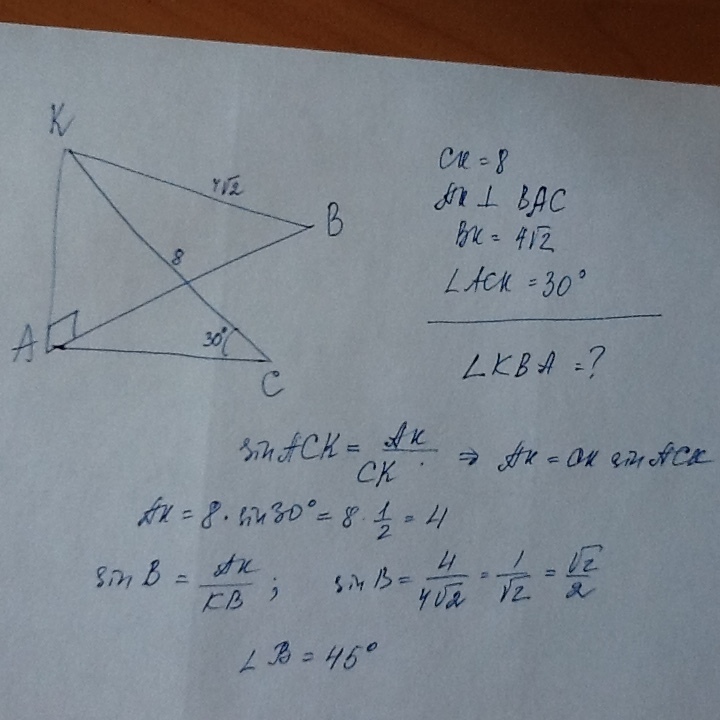 K
4√2
B
8
A
30°
C
CK = 8
AK ⊥ BAC
BK = 4√2
∠ACK = 30°
∠KBA = ?
sin ACK = AK/CK · ⇒ AK = CK sin ACK
AK = 8 · sin 30° = 8 · 1/2 = 4
sin B = AK/KB ; sin B = 4/4√2 = 1/√2 = √2/2
∠B = 45°